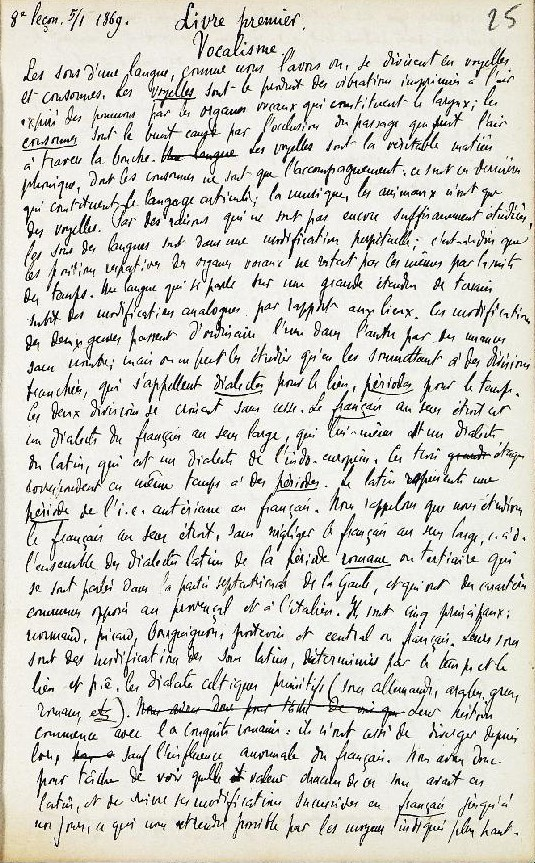 8e leçon. 5/1 1869. Livre premier. 25
Vocalisme.
Les sons d'une langue, comme nous l'avons vu, se divisent en voyelles
et consonnes. Les voyelles sont le produit des vibrations imprimées à l'air
expiré des poumons par les organes vocaux qui constituent le larynx; les
consonnes sont le bruit causé par l'occlusion du passage que suit l'air
à travers la bouche. Une langue Les voyelles sont la véritable matière
phonique, dont les consonnes ne sont que l'accompagnement: ce sont ces dernières
qui constituent le langage articulé; la musique, les animaux n'ont que
des voyelles. Par des raisons qui ne sont pas encore suffisamment étudiées,
les sons des langues sont dans une modification perpétuelle; c'est-à-dire que
les positions respectives des organes vocaux ne restent pas les mêmes par la suite
du temps. Une langue qui se parle sur une grande étendue de terrain
subit des modifications analogues par rapport aux lieux. Ces modifications
des deux genres passent d'ordinaire l'une dans l'autre par des nuances
sans nombre; mais on ne peut les étudier qu'en les soumettant à des divisions
tranchées, qui s'appellent dialectes pour le lieu, périodes pour le temps.
Ces deux divisions se croisent sans cesse. Le français au sens étroit est
un dialecte du français au sens large, qui lui-même est un dialecte
du latin, qui est un dialecte de l'indo-européen. Ces trois étages
correspondent en même temps à des périodes. Le latin représente une
période de l'i.e. antérieure au français. Nous rappelons que nous étudions
le français au sens étroit, sans négliger le français au sens large, c.-à-d.
l'ensemble des dialectes latins de la période romane ou tertiaire qui
se sont parlés dans la partie septentrionale de la Gaule, et qui ont des caractères
communs opposés au provençal et à l'italien. Ils sont cinq principaux:
normand, picard, bourguignon, poitevin et central ou français. Leurs sons
sont des modifications des sons latins, déterminées par le temps et le
lieu et p.ê. les dialectes celtiques primitifs (sons allemands, arabes, grecs,
romans etc). Nous avons donc pour tâche de voir que Leur histoire
commence avec la conquête romaine: ils n'ont cessé de diverger depuis
lors, sauf l'influence anormale du français. Nous avons donc
pour tâche de voir quelle valeur chacun de ces sons avait en
latin, et de suivre ses modifications successives en français jusqu'à
nos jours, ce qui nous est rendu possible par les moyens indiqués plus haut.